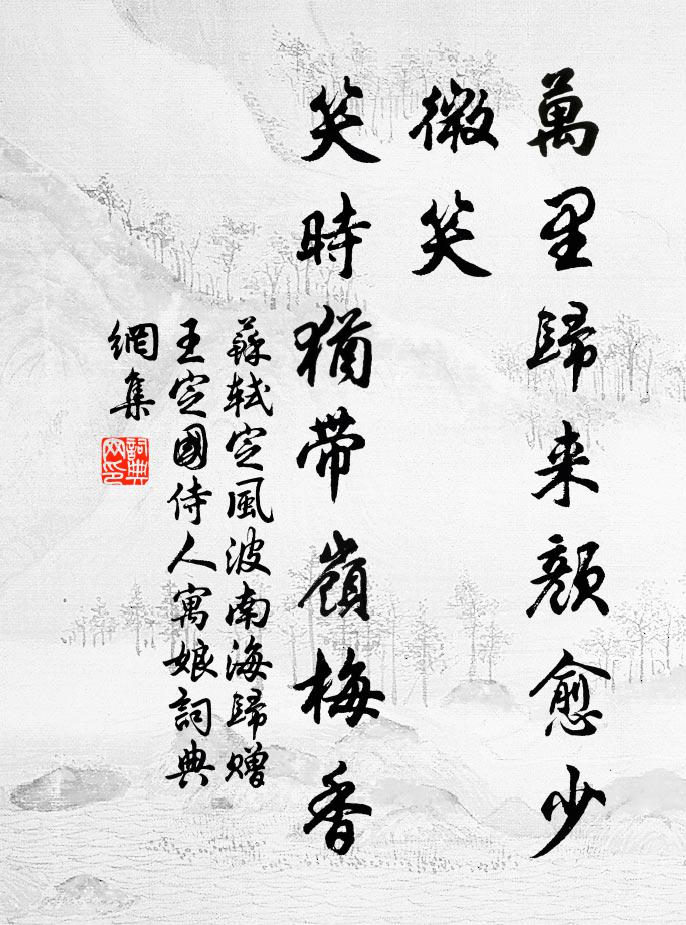 萬里歸来顔愈少
微笑
笑時猶带嶺梅香
蘇軾定風波南海歸赠
王定國侍人寓娘詞典
網集
詞典網印